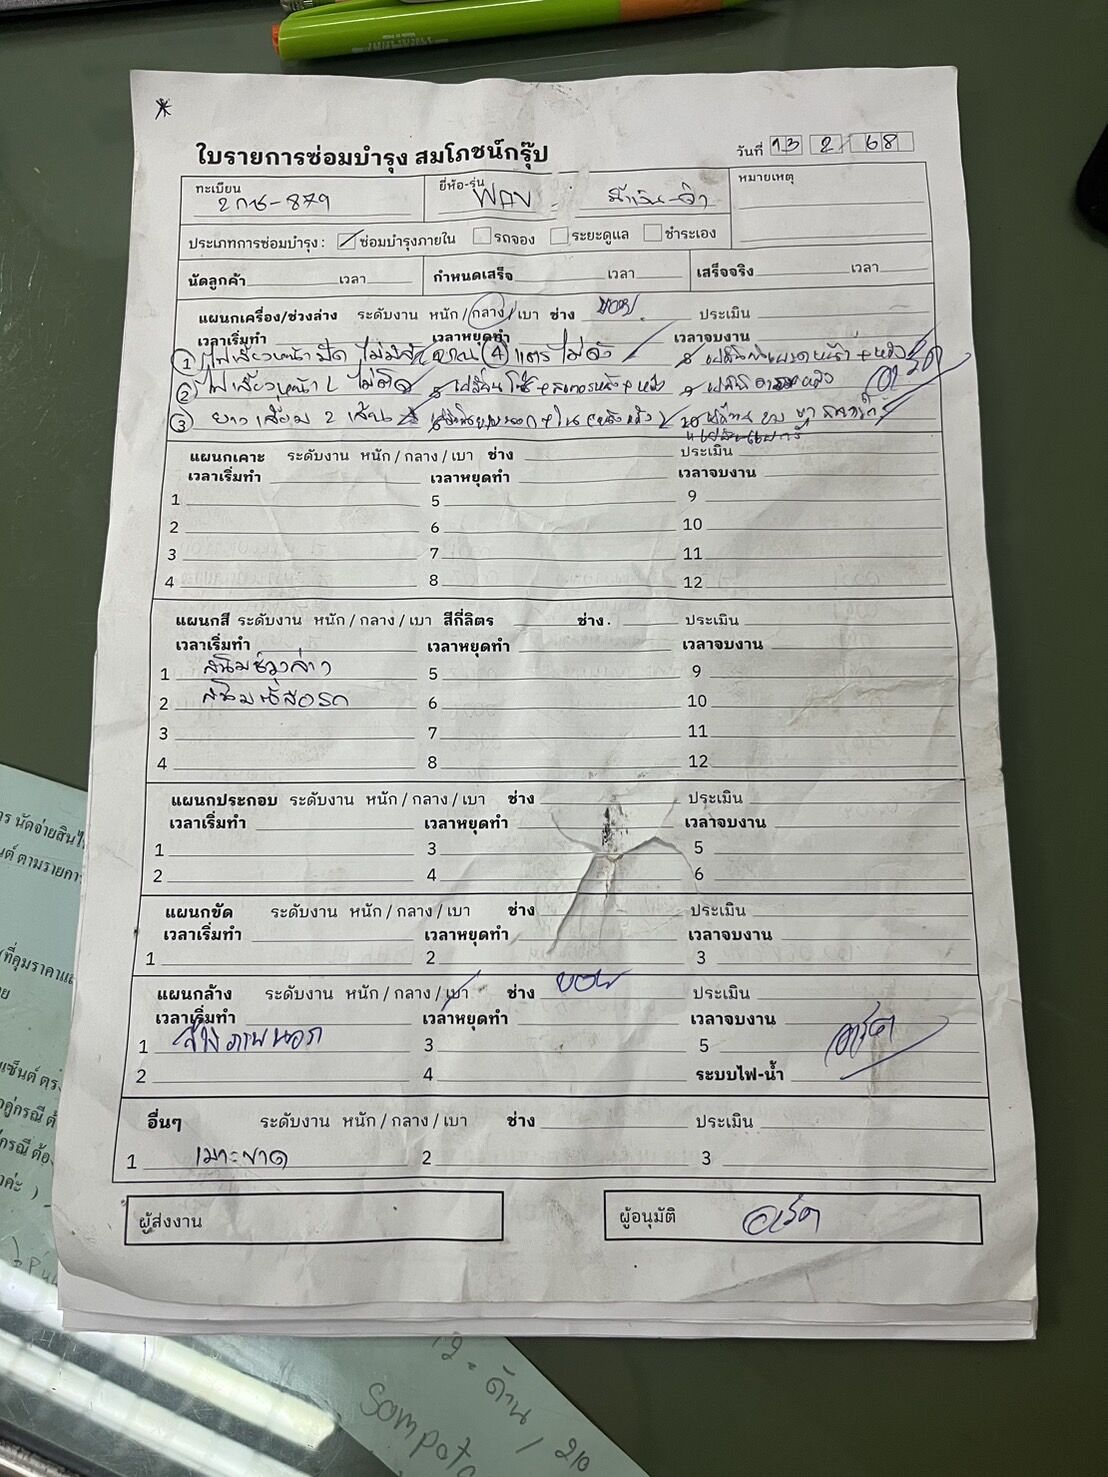 ใบรายการซ่อมบำรุง สมโภชน์กรุ๊ป
วันที่ 13 2 68
ทะเบียน 2กษ-879 ยี่ห้อ-รุ่น WAV น้ำเงิน-ดำ หมายเหตุ
ประเภทการซ่อมบำรุง : ซ่อมบำรุงภายใน รถจอง ระยะดูแล ชำระเอง
นัดลูกค้า เวลา กำหนดเสร็จ เวลา เสร็จจริง เวลา
แผนกเครื่อง/ช่วงล่าง ระดับงาน หนัก / กลาง / เบา ช่าง ประเมิน
เวลาเริ่มทำ เวลาหยุดทำ เวลาจบงาน
1 ไฟเลี้ยวหน้า ไม่มี 4 แตรไม่ดัง 8 หน้า + หลัง
2 ไฟเลี้ยวหน้า L ไม่ติด 5 เปลี่ยนโซ่ + สเตอร์หน้า + หลัง 9
3 ยางเสื่อม 2 เส้น
แผนกเคาะ ระดับงาน หนัก / กลาง / เบา ช่าง ประเมิน
เวลาเริ่มทำ เวลาหยุดทำ เวลาจบงาน
1 5 9
2 6 10
3 7 11
4 8 12
แผนกสี ระดับงาน หนัก / กลาง / เบา สีกี่ลิตร ช่าง. ประเมิน
เวลาเริ่มทำ เวลาหยุดทำ เวลาจบงาน
1 สนิมช่วงล่าง 5 9
2 6 10
3 7 11
4 8 12
แผนกประกอบ ระดับงาน หนัก / กลาง / เบา ช่าง ประเมิน
เวลาเริ่มทำ เวลาหยุดทำ เวลาจบงาน
1 3 5
2 4 6
แผนกขัด ระดับงาน หนัก / กลาง / เบา ช่าง ประเมิน
เวลาเริ่มทำ เวลาหยุดทำ เวลาจบงาน
1 2 3
แผนกล้าง ระดับงาน หนัก / กลาง / เบา ช่าง ประเมิน
เวลาเริ่มทำ เวลาหยุดทำ เวลาจบงาน
1 ล้างภายนอก 3 5
2 4 ระบบไฟ-น้ำ
อื่นๆ ระดับงาน หนัก / กลาง / เบา ช่าง ประเมิน
1 เบาะขาด 2 3
ผู้ส่งงาน ผู้อนุมัติ